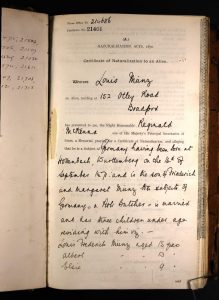 Home Office No. 214686
Certificate No. 21401
NATURALIZATION ACTS, 1870.
Certificate of Naturalization to an Alien.
Whereas Louis Münz
an Alien, residing at 102 Otley Road
Bradford
has presented to me, the Right Honourable Reginald
McKenna one of His Majesty's Principal Secretaries of
State, a Memorial, praying for a Certificate of Naturalization, and alleging
that he is a Subject of Germany having been born at
Württemberg on the
September and is the son of Frederick
and Margaret Münz the subjects of
Germany, a Pork Butcher is married
and has three children under age
residing with him viz:-
Louis Frederick Münz aged 15 years
Albert 13
Elsie 9